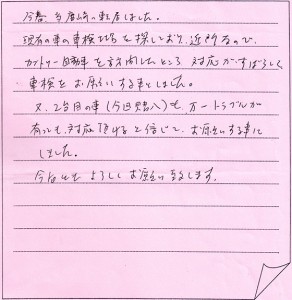 今春 高崎に転居しました。
現有の車の車検にちを探しており、近所なので、
カントリー自動車を訪問したところ 対応がすばらしく
車検をお願いする事としました。
又、2台目の車(今回購入)も、万一トラブルが
有っても、対応頂けると信じて、お願いする事に
しました。
今後共 よろしくお願い致します。